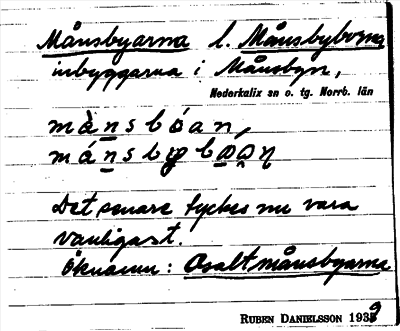 Månsbyarna l. Månsbyborna
inbyggarna i Månsbyn,
Nederkalix sn o. tg. Norrb. län
Det senare tyckes nu vara
vanligast.
Öknamn: Osaltmånsbyarna
RUBEN DANIELSSON 1932